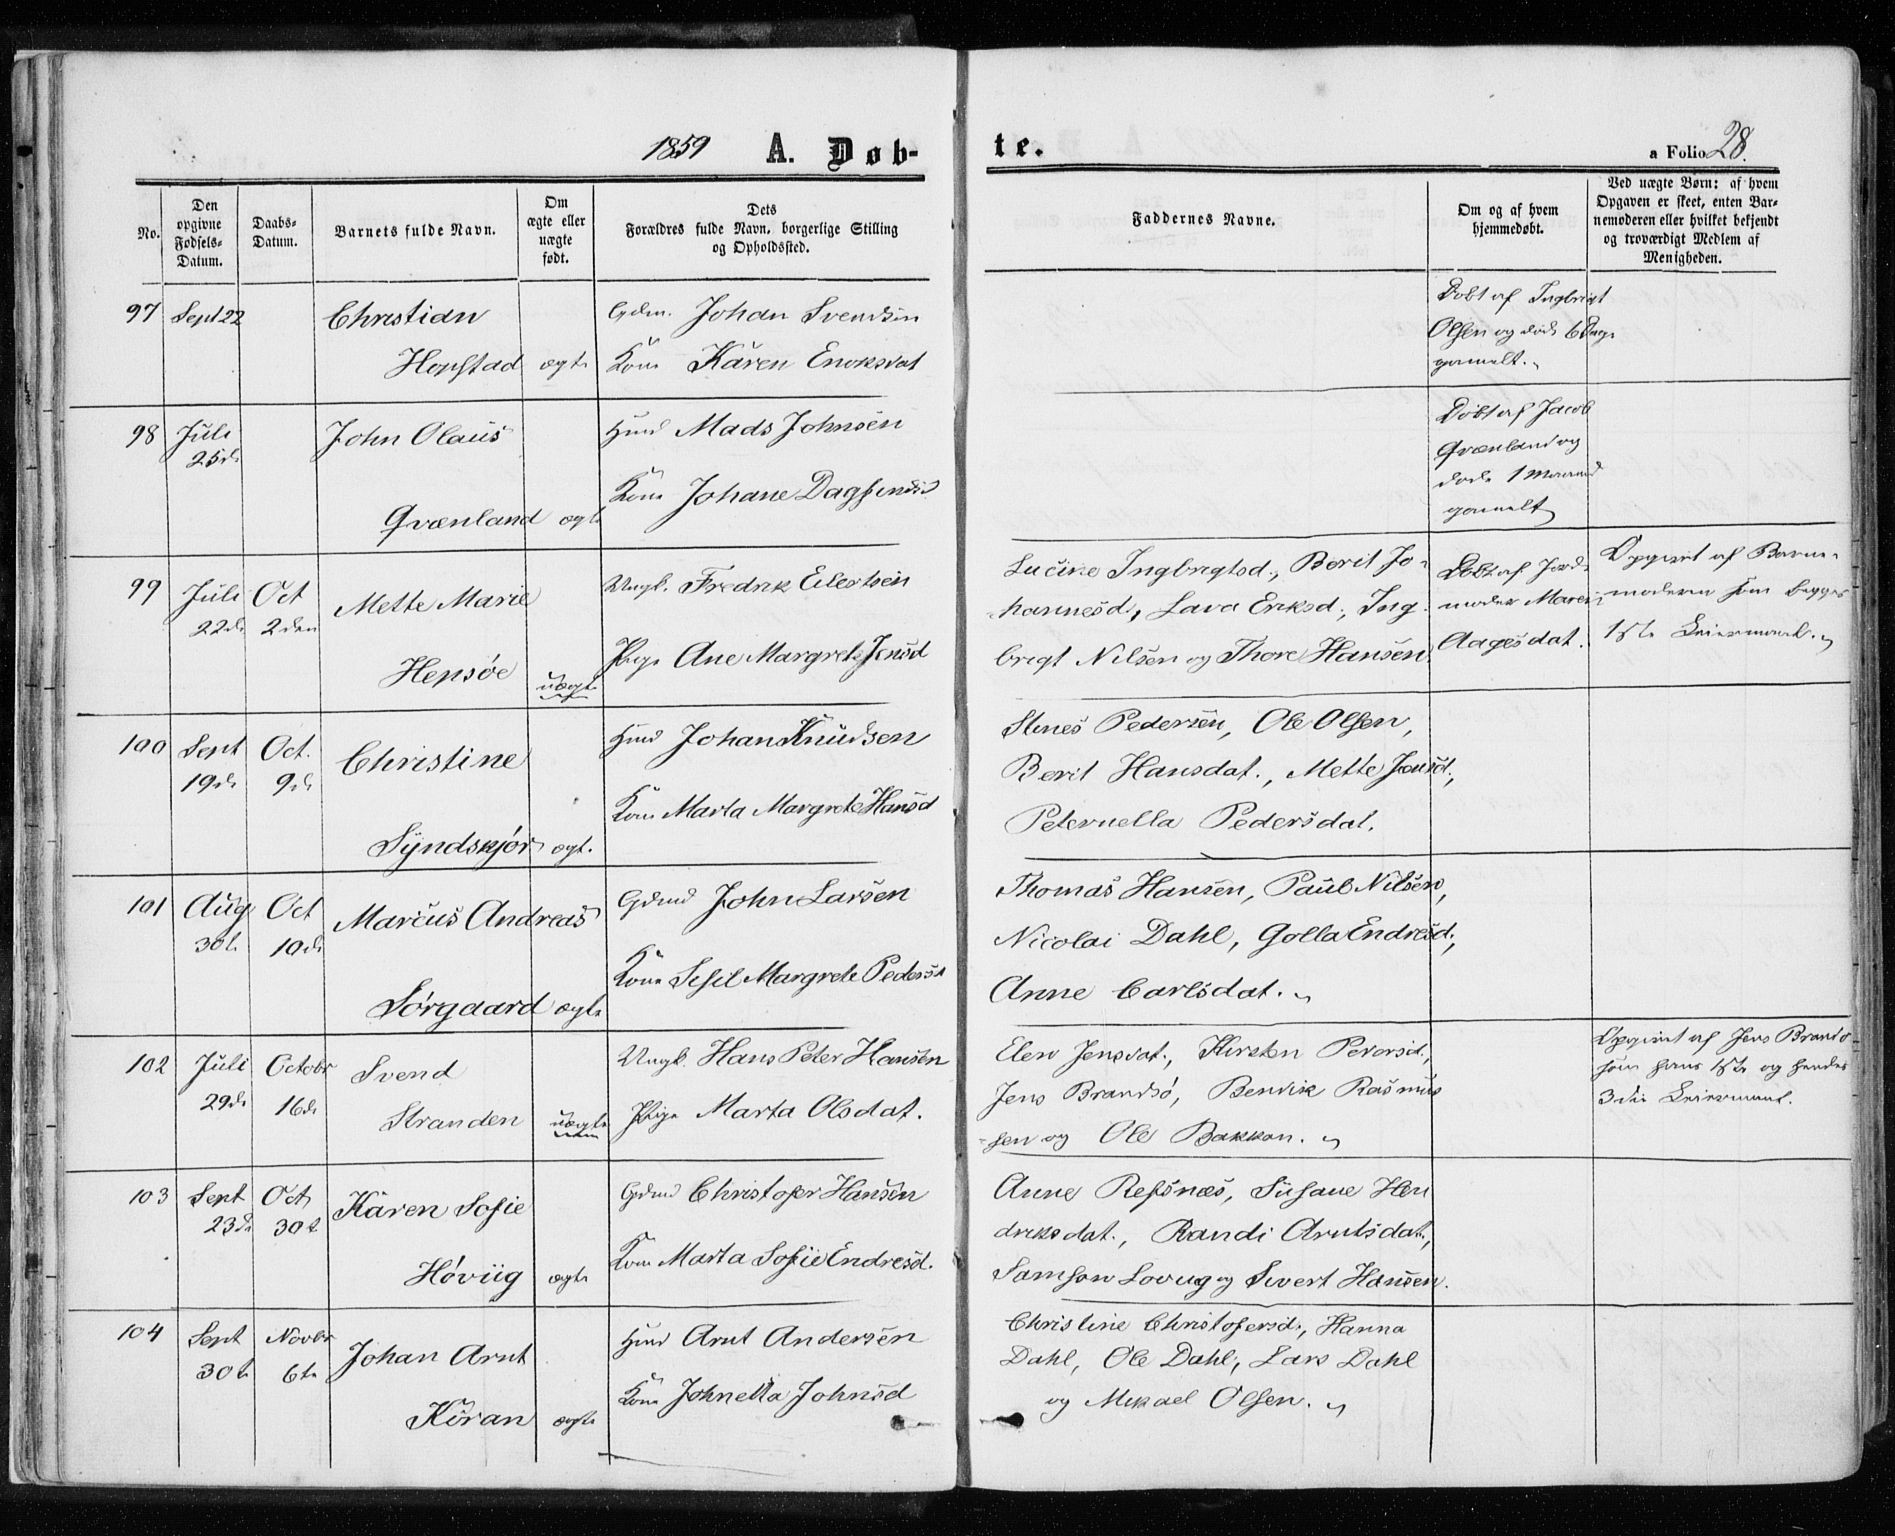 1859 A. Døb-
te.
a Folio 28.
No.
Den
opgivne
Fødsels-
Datum.
Daabs-
Datum.
Barnets fulde Navn.
Om
ægte eller
uægte
født.
Dets
Forældres fulde Navn, borgerlige Stilling
og Opholdssted.
Faddernes Navne.
Om og af hvem
hjemmedøbt.
Ved uægte Børn: af hvem
Opgaven er skeet, enten Bar-
nemoderen eller hvilket bekjendt
og troværdigt Medlem af
Menigheden.
97 Sept 22 Christian Gdm. Johan Svendsen
Hopstad ægte Kone Karen Enoksdat
Døbt af Ingbrigt
Olsen og døde 6 Dage
gammelt.
98 Juli John Olaus Huusd Mads Johnsen
25de
Kone Johane Dagfinsd
Qvænland ægte
Døbt af Jacob
Qvænland og
døde 1 Maaned
gammelt
99 Juli Oct Mette Marie Ungk. Fredrik Eilertsen
22de 2den
Hepsøe uægte Pige Ane Margrete Jensd
Lucine Ingbrigtsd., Berit Jo-
hannesd., Lava Eriksd., Ing-
brigt Nilsen og Thore Hansen
Døbt af Jord-
moder Maren
Aagesdat.
Opgivet af Barne-
moderen som begges
1ste Leiermaal.
100 Sept Oct. Christine Huusd Johan Knudsen
19de 9de
Kone Marta Margrete Hansd
Syndskjør ægt.
Stines Pedersen, Ole Olsen,
Berit Hansdat., Mette Jensd.,
Peternella Pedersdat.
101 Aug Oct Marcus Andreas Gdmd John Larsen
30te 10de
Kone Sesil Margrete Pedersd
Sørgaard ægte
Thomas Hansen, Paul Nilsen,
Nicolai Dahl, Golla Endresd.,
Anne Carlsdat.
102 Juli Octobr Svend Ungk. Hans Peter Hansen
29de 16de
Stranden uægte Pige Marta Olsdat.
Elen Jensdat., Kirsten Pedersd.,
Jens Brandsø, Bendik Rasmus
-sen og Ole Bakken.
Opgivet af Jens Brandsø
som hans 1ste og hendes
3die Leiermaal.
103 Sept Oct Karen Sofie Gdmd Christofer Hansen
23de 30te
Høviig ægte Kone Marta Sofie Endresd.
Anne Refsnæs, Susane Hen
driksdat., Randi Arntsdat.,
Samson Lovug og Sivert Hansen.
104 Sept Novbr Johan Arnt Huusd Arnt Andersen
30te 6te
Kiran ægte Kone Johnetta Johnsd
Christine Christofersd., Hanna
Dahl, Ole Dahl, Lars Dahl
og Mikael Olsen.